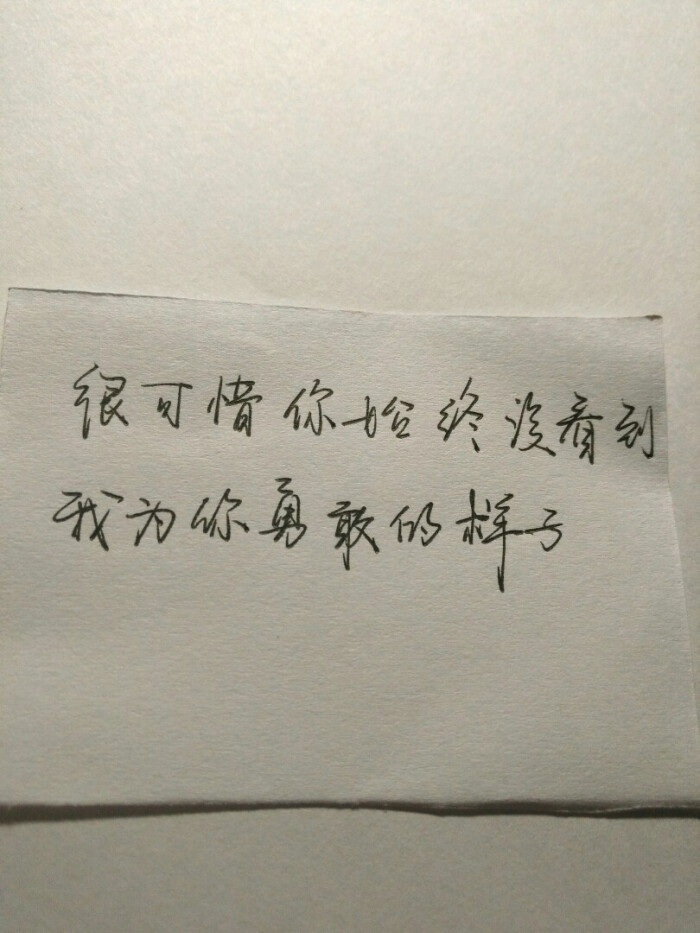 很可惜你始终没看到
我为你勇敢的样子